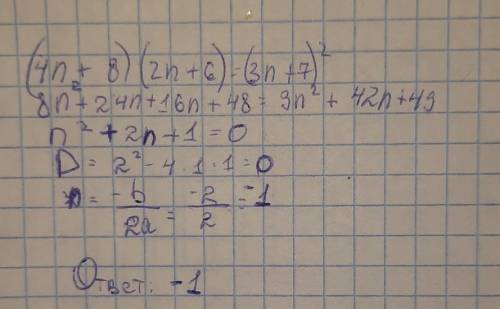 (4n + 8)(2n+6) = (3n+7)²
8n² + 24n + 16n + 48 = 9n² + 42n + 49
n² + 2n + 1 = 0
D = 2² - 4 · 1 · 1 = 0
n = -b/2a = -2/2 = -1
Ответ: -1